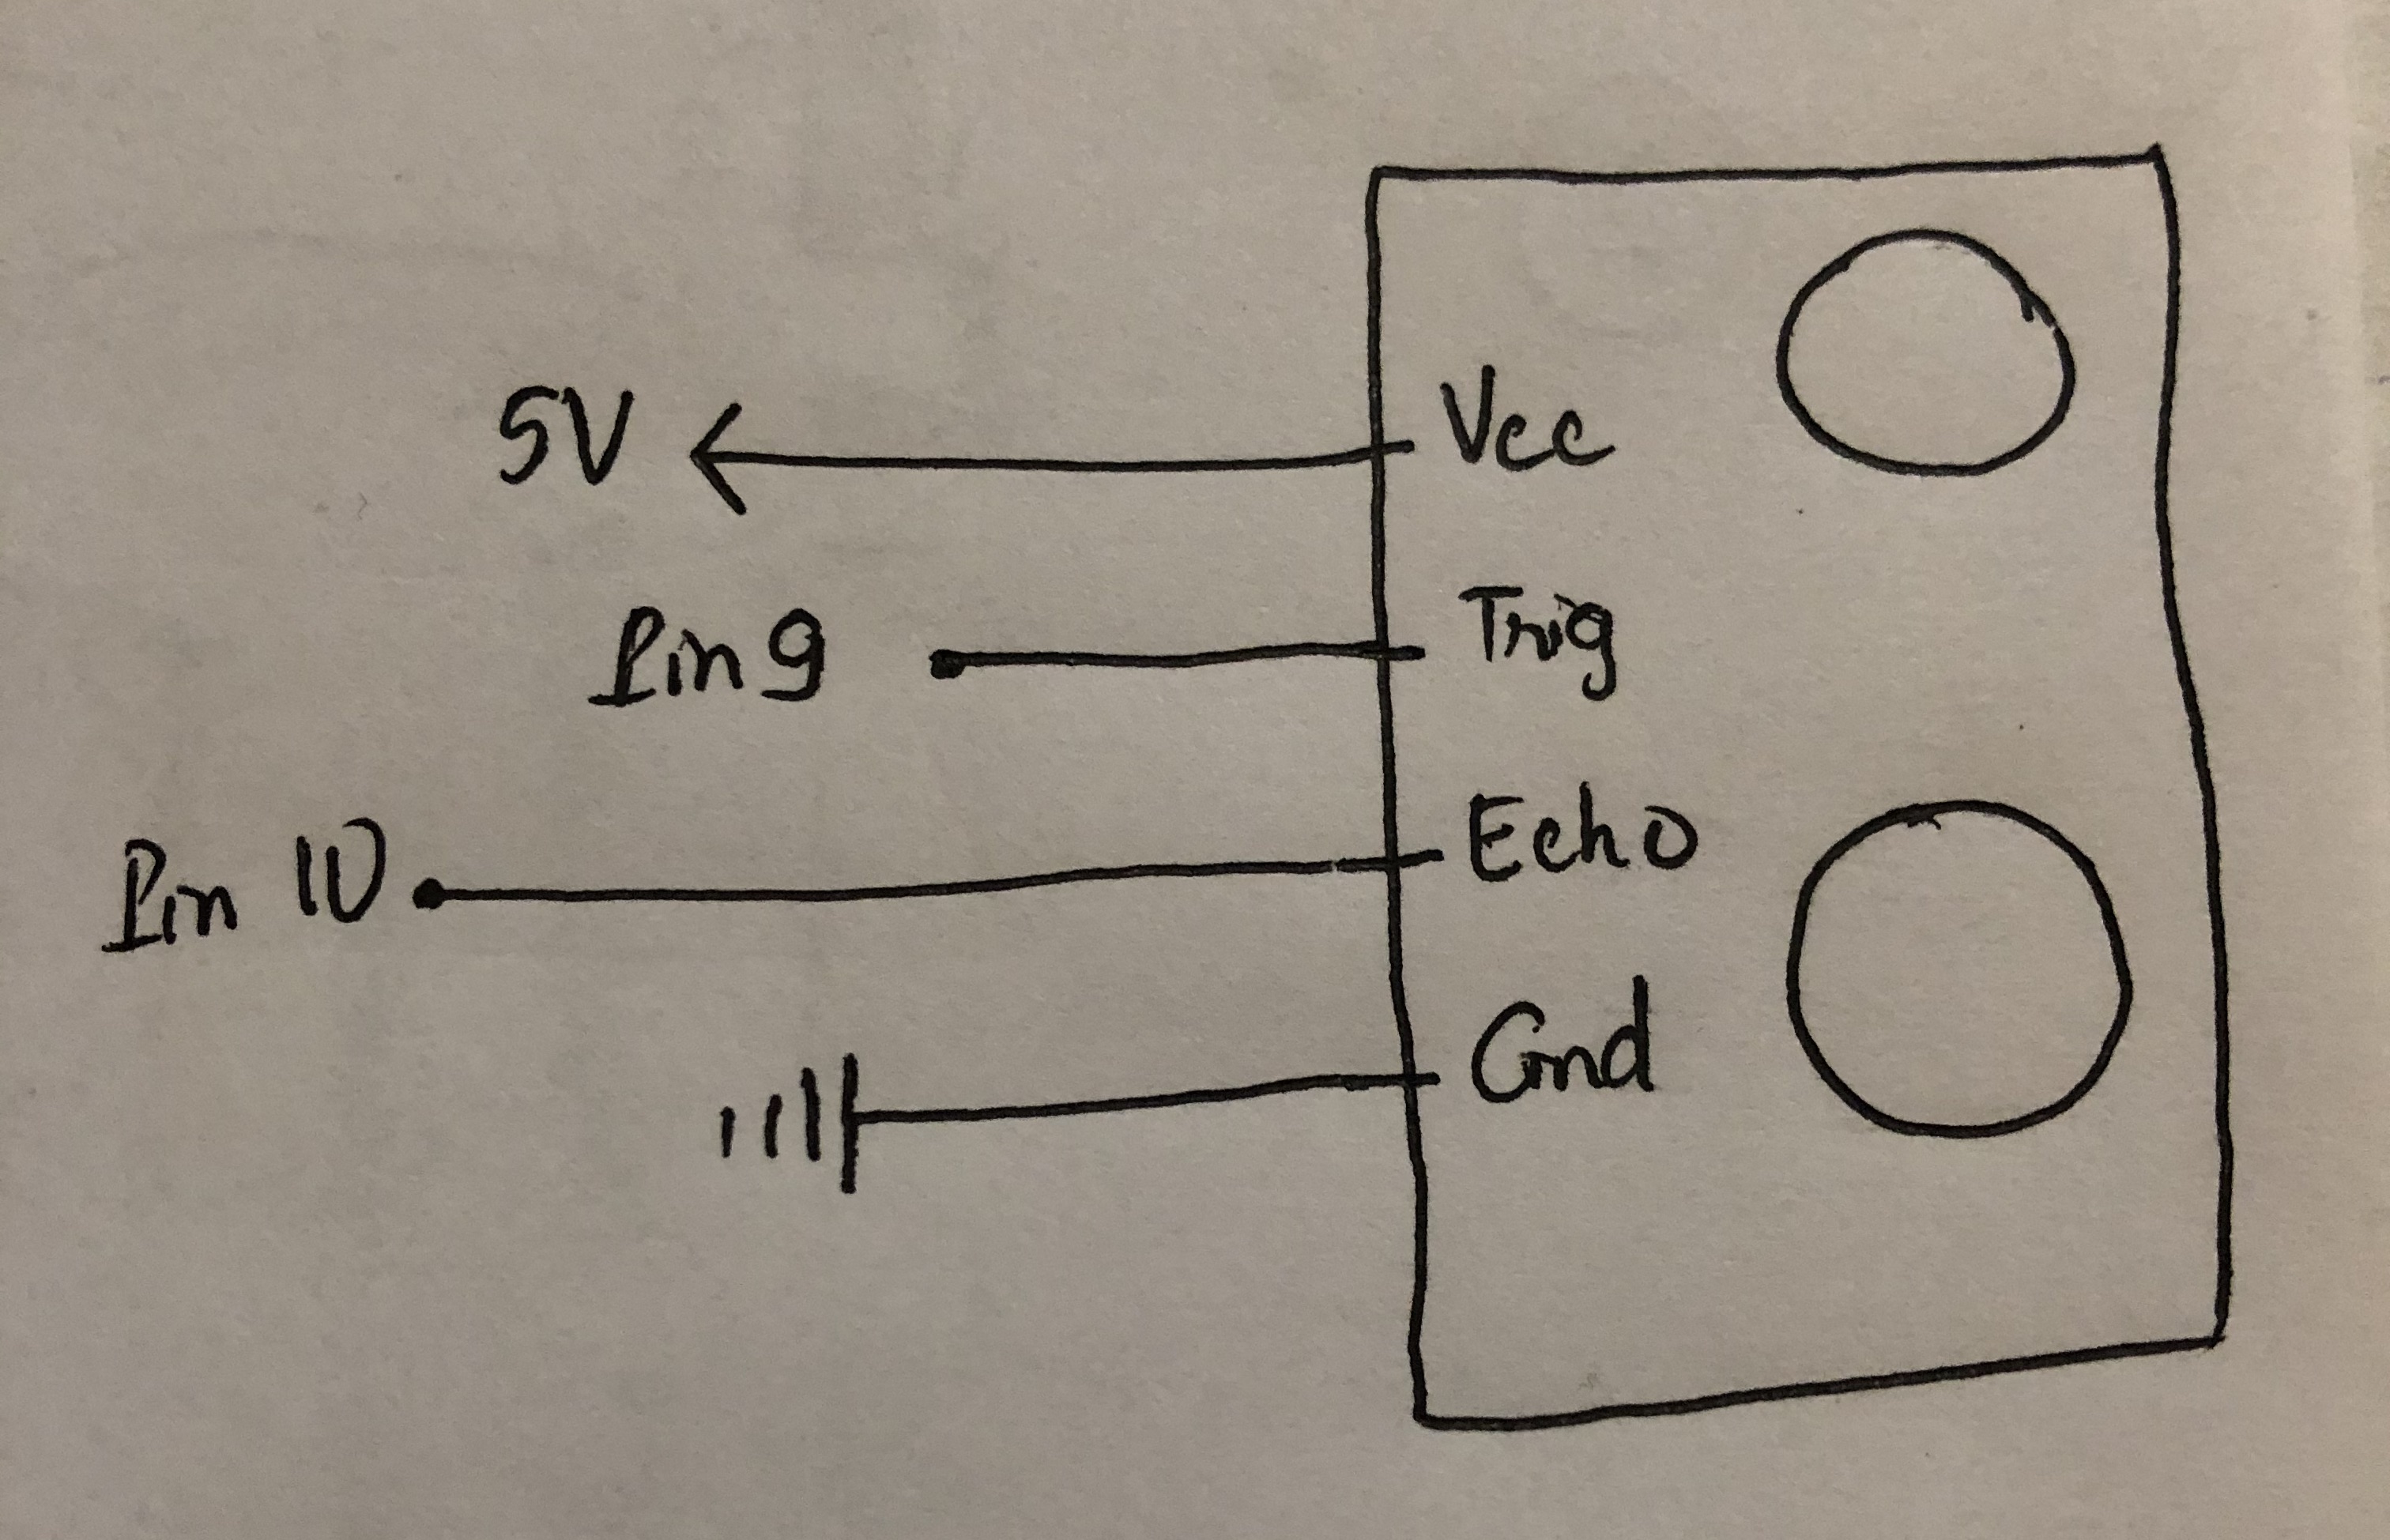 5V Vcc
Pin 9 Trig
Pin 10 Echo
Gnd